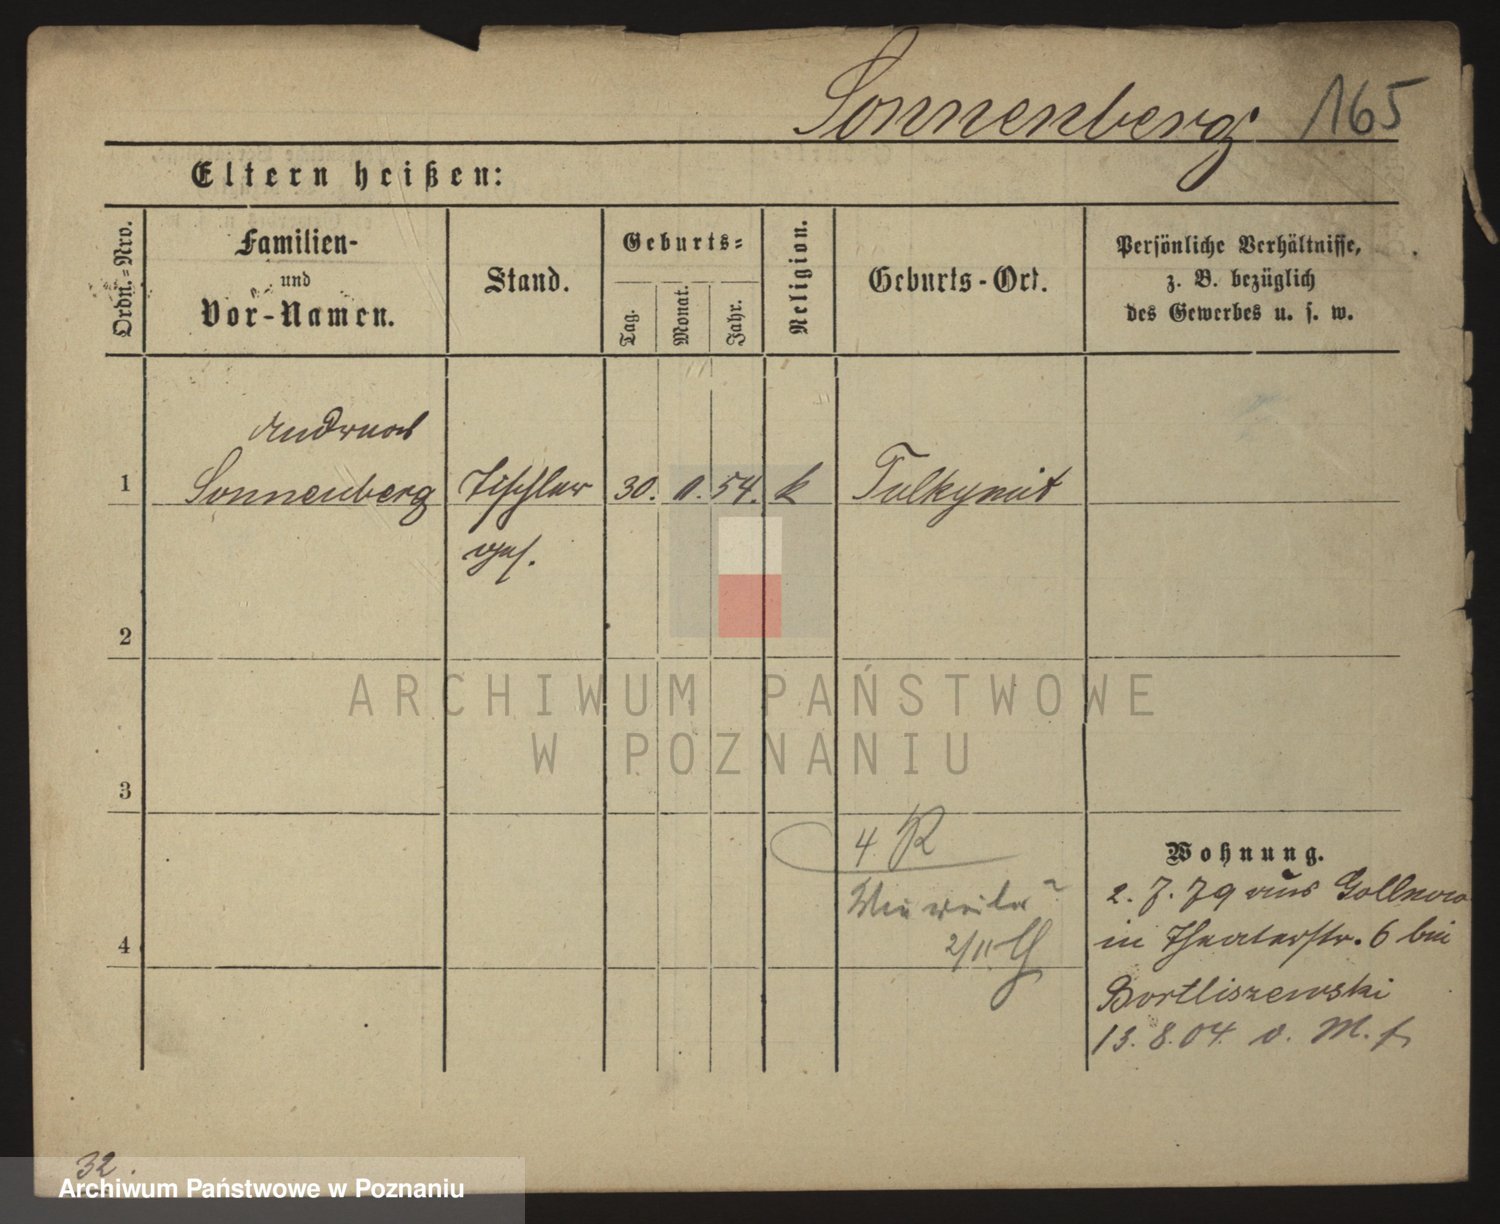 Sonnenberg 165
Eltern heißen:
Ordn.-Nro.
Familien-
und
Vor-Namen.
Stand.
Geburts-
Tag.
Monat.
Jahr.
Religion.
Geburts-Ort.
Persönliche Verhältnisse,
z. B. bezüglich
des Gewerbes u. s. w.
Andreas
1 Sonnenberg Tischler 30. 11. 54. k Tolkymit
ges.
2
ARCHIWUM PAŃSTWOWE
W POZNANIU
3
4 R
Wohnung.
2. 7. 79 aus Gollnow
2/11
4
in Theaterstr. 6 bei
Bortliszewski
13. 8. 04. v. M. f
32.
Archiwum Państwowe w Poznaniu